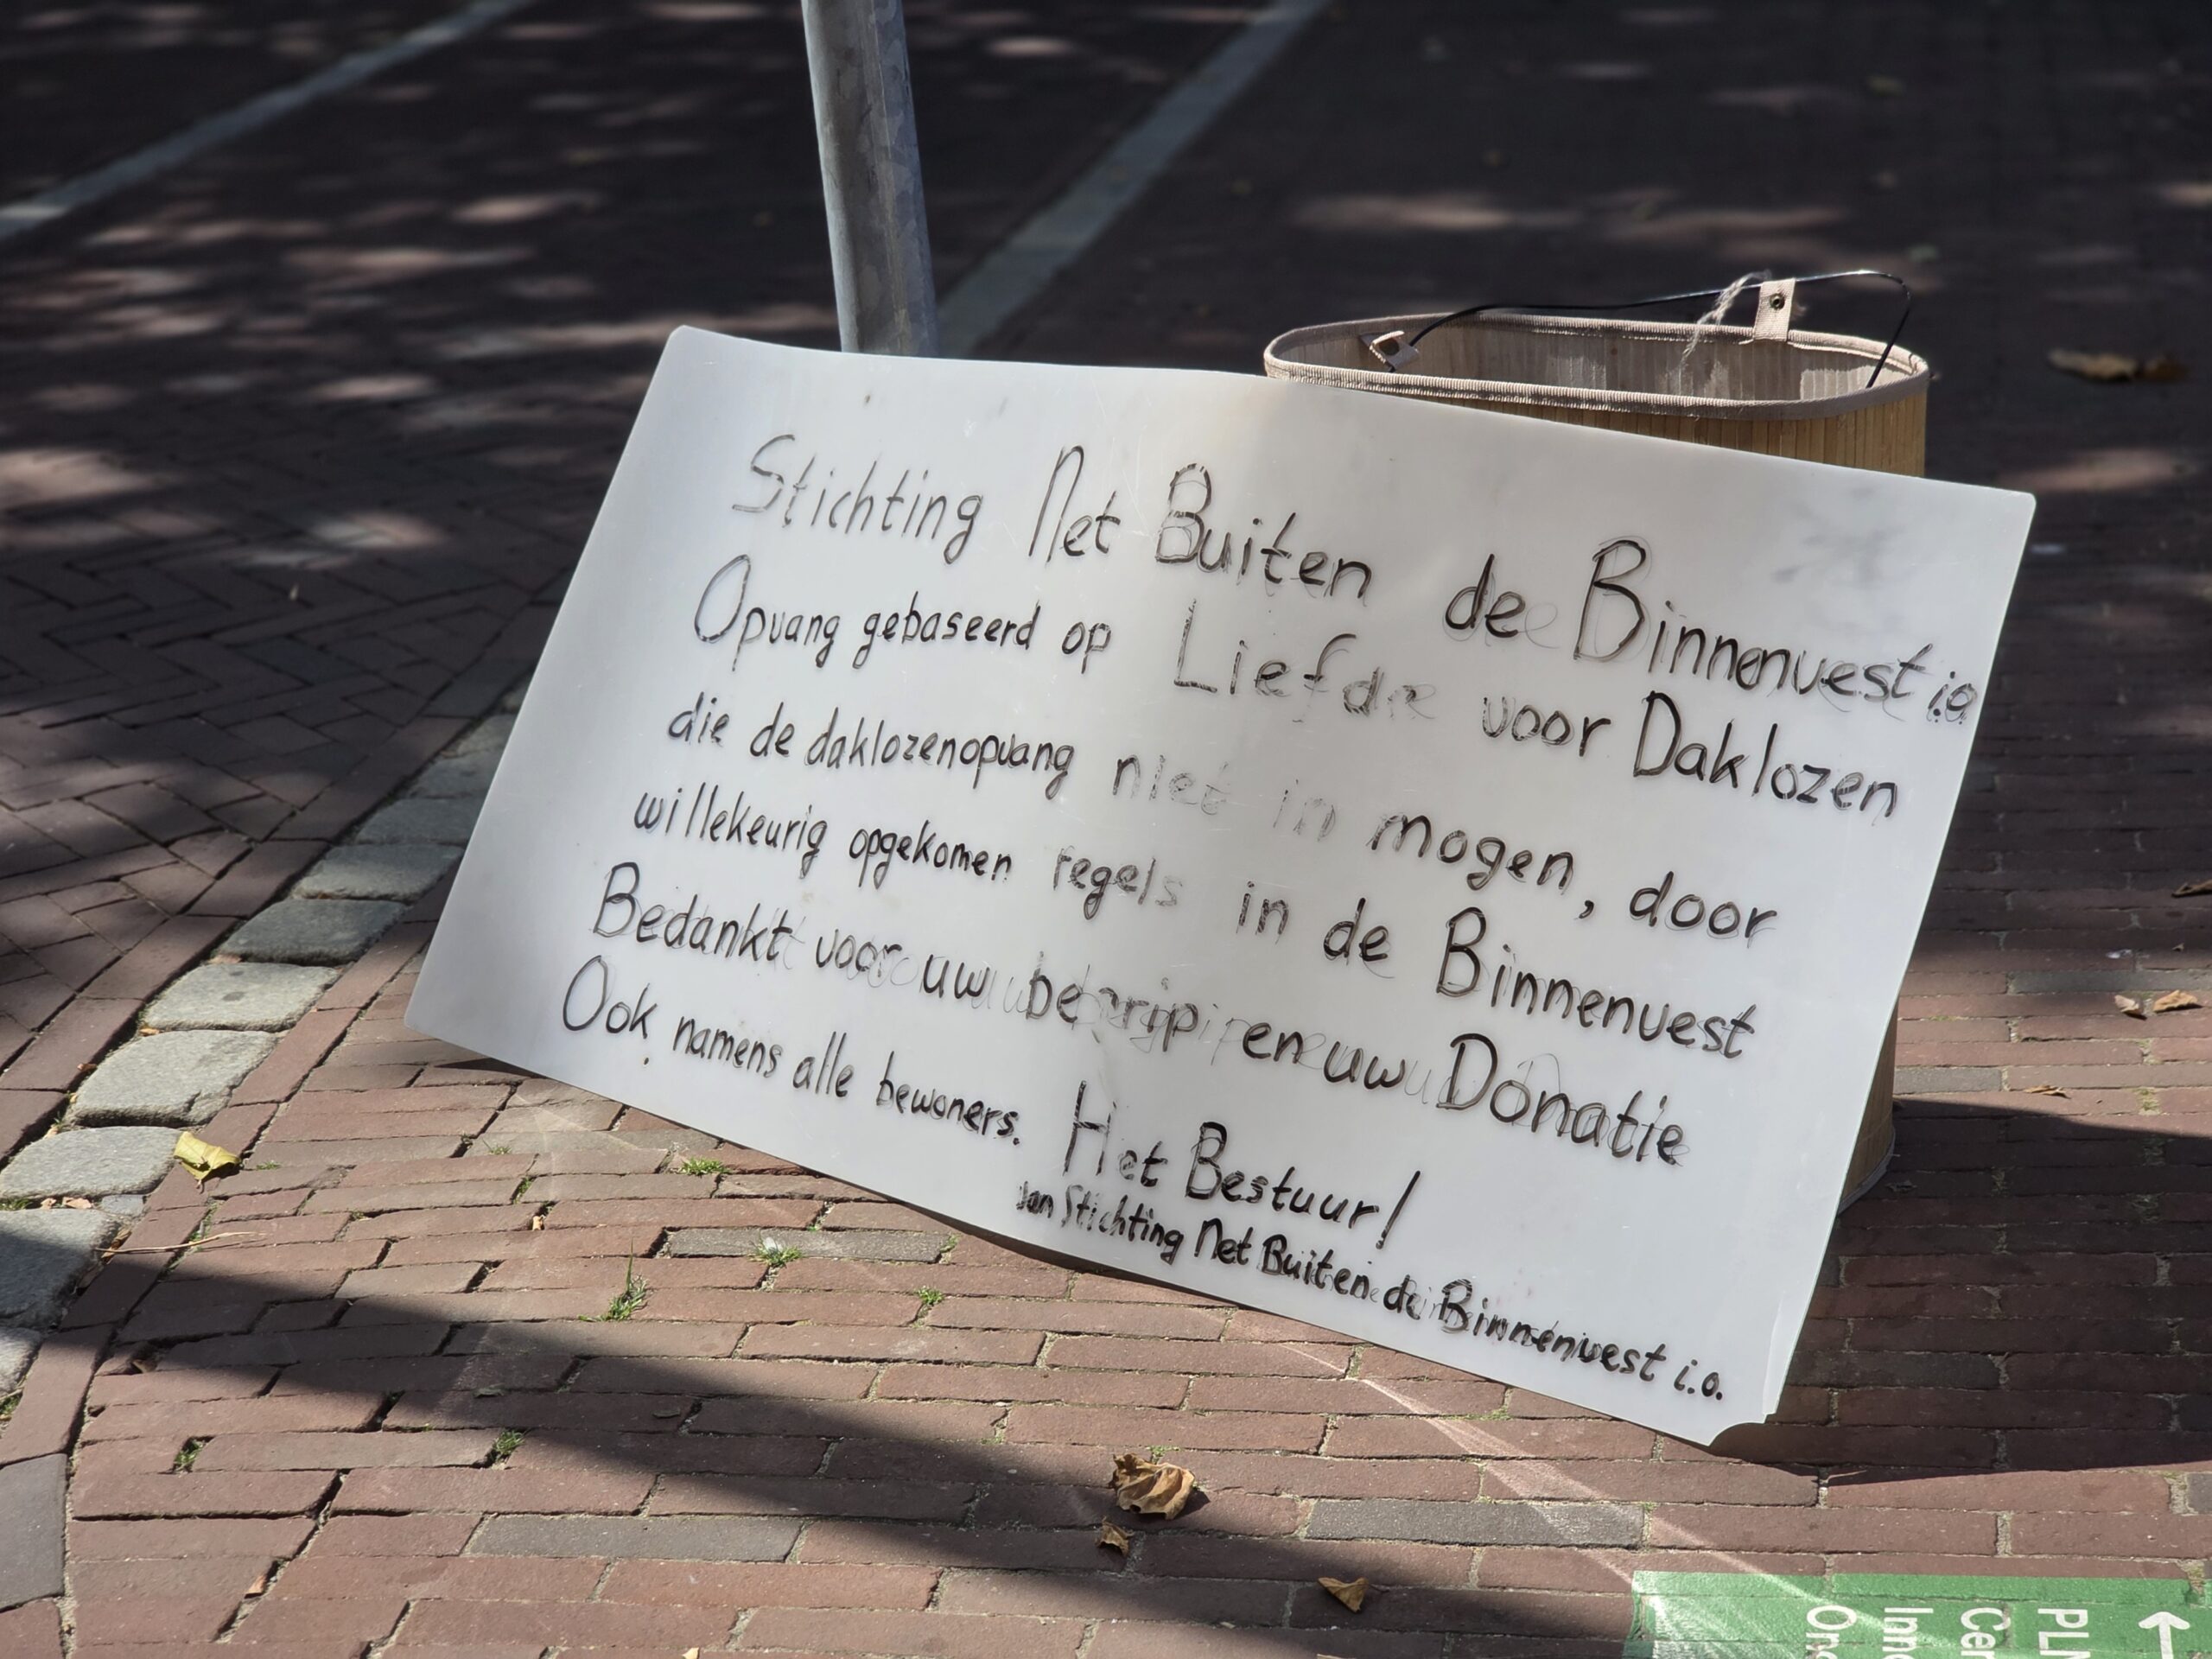 Stichting Net Buiten de Binnenvest i.o
Opvang gebaseerd op Liefde voor Daklozen
die de daklozenopvang niet in mogen, door
willekeurig opgekomen regels in de Binnenvest
Bedankt voor uw begrip en uw Donatie
Ook namens alle bewoners. Het Bestuur!
van Stichting Net Buiten de Binnenvest i.o.